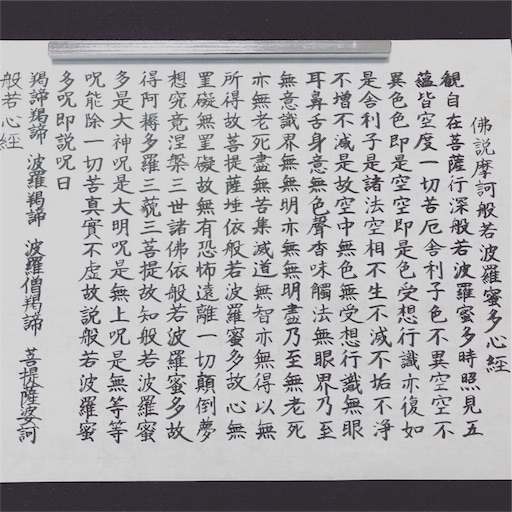 佛説摩訶般若波羅蜜多心經
観自在菩薩行深般若波羅蜜多時照見五
蘊皆空度一切苦厄舎利子色不異空空不
異色色即是空空即是色受想行識亦復如
是舎利子是諸法空相不生不滅不垢不浄
不増不減是故空中無色無受想行識無眼
耳鼻舌身意無色聲香味觸法無眼界乃至
無意識界無無明亦無無明盡乃至無老死
亦無老死盡無苦集滅道無智亦無得以無
所得故菩提薩埵依般若波羅蜜多故心無
罣礙無罣礙故無有恐怖遠離一切顛倒夢
想究竟涅槃三世諸佛依般若波羅蜜多故
得阿耨多羅三藐三菩提故知般若波羅蜜
多是大神呪是大明呪是無上呪是無等等
呪能除一切苦真實不虚故説般若波羅蜜
多呪即説呪曰
羯諦羯諦 波羅羯諦 波羅僧羯諦 菩提薩婆訶
般若心經